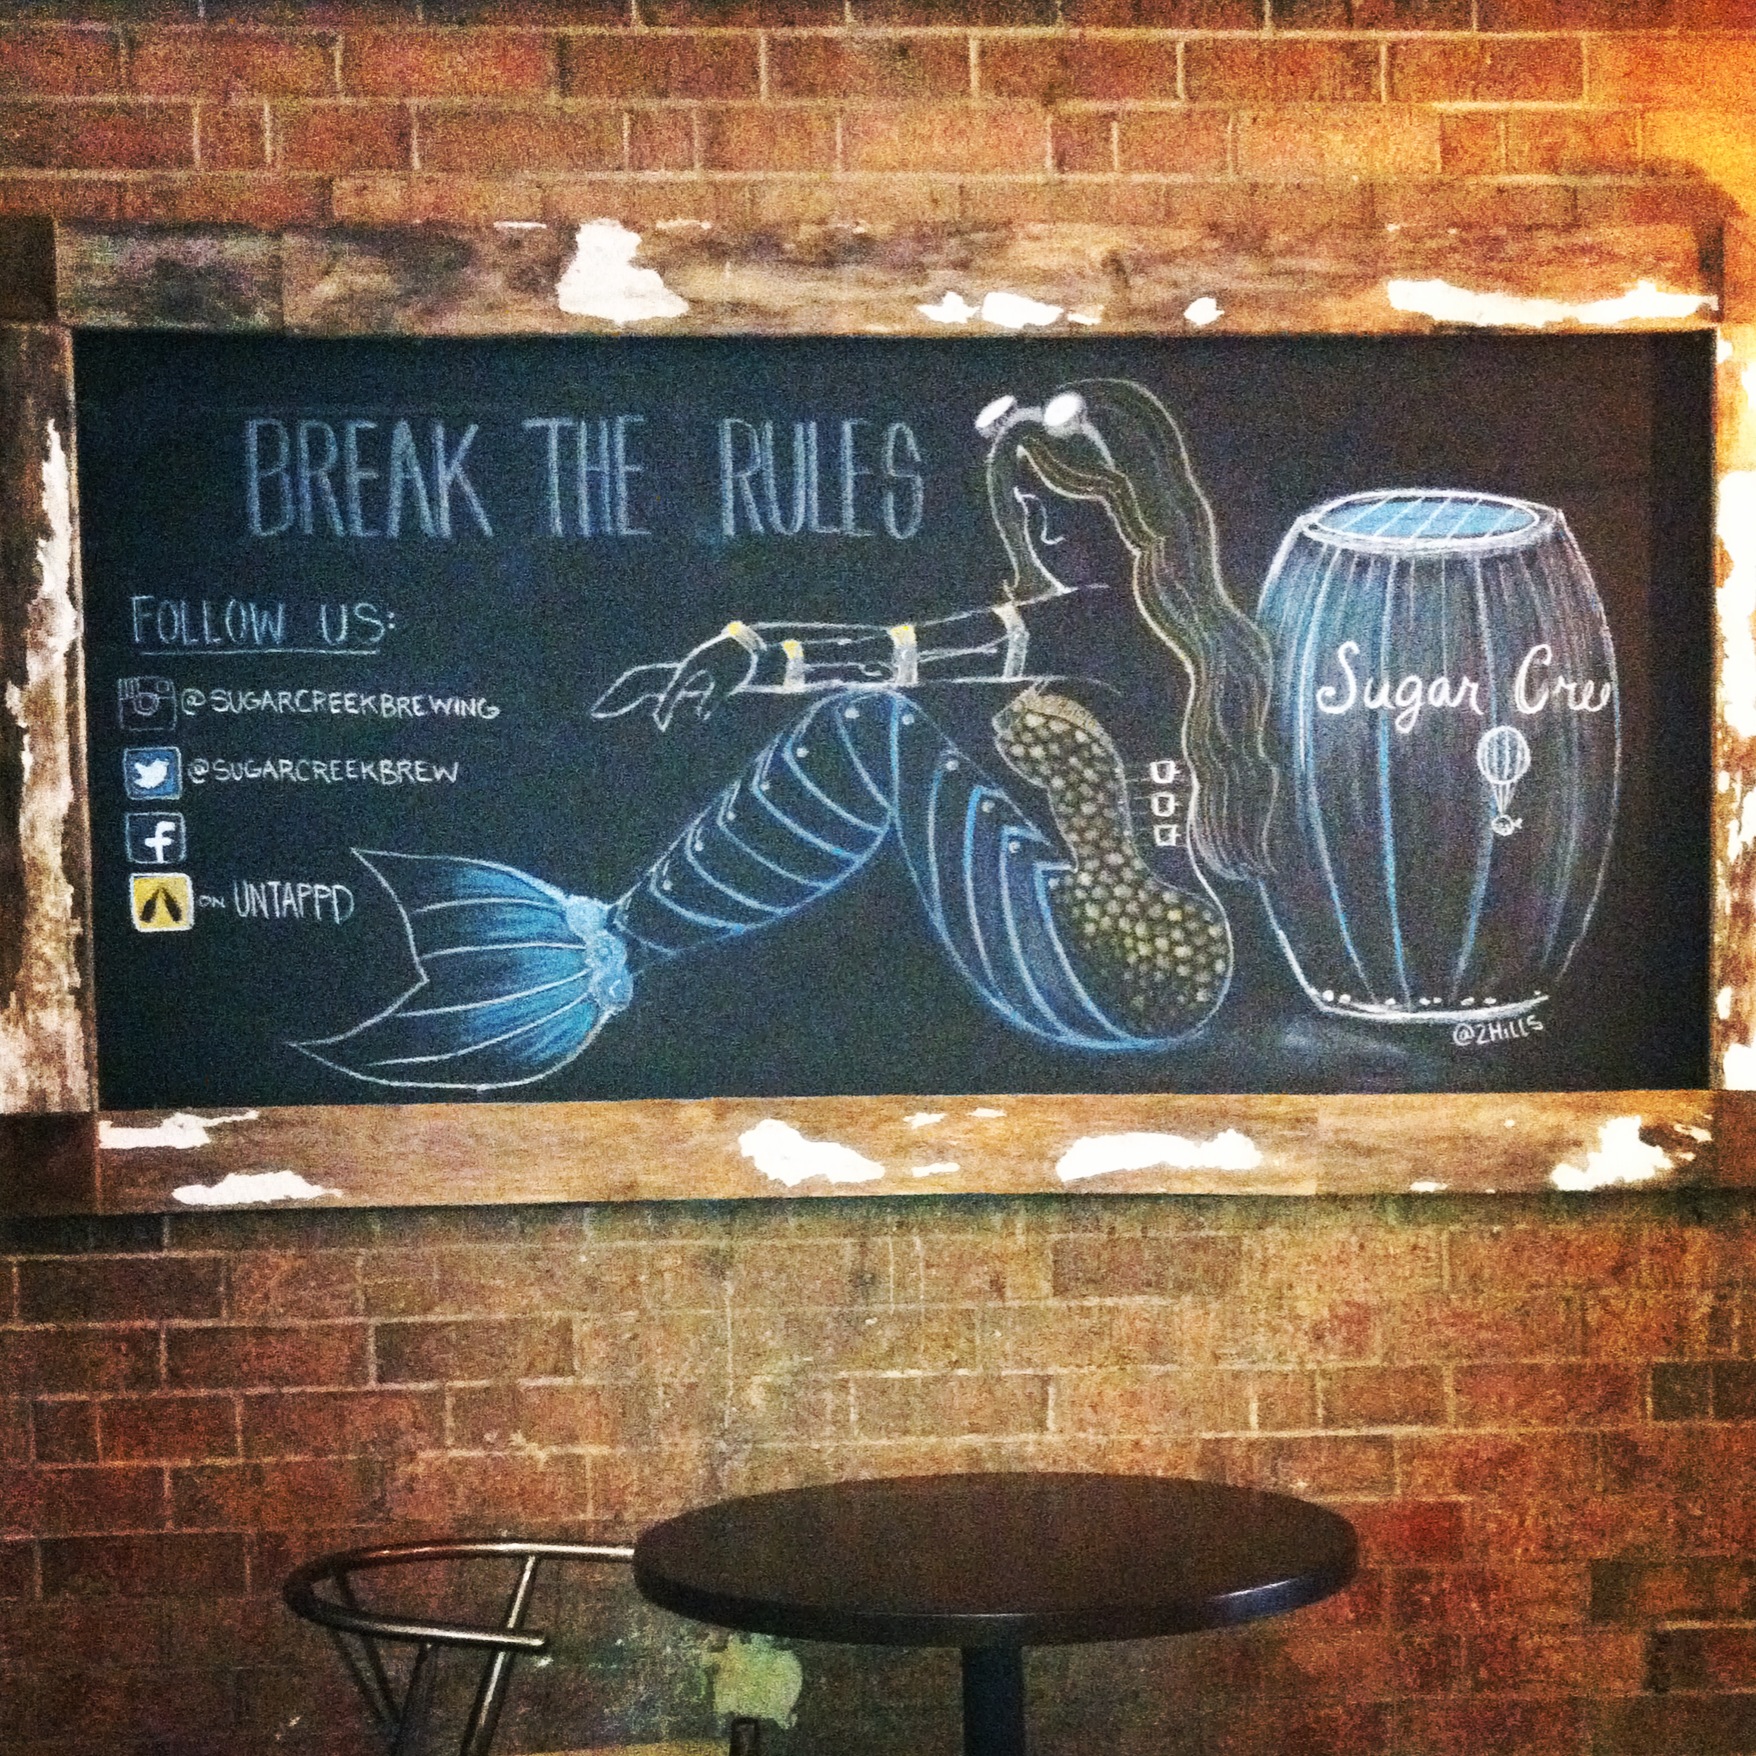 BREAK THE RULES
FOLLOW US:
@SUGARCREEKBREWING
@SUGARCREEKBREW
f
ON UNTAPPD
Sugar Cree
@2HillS